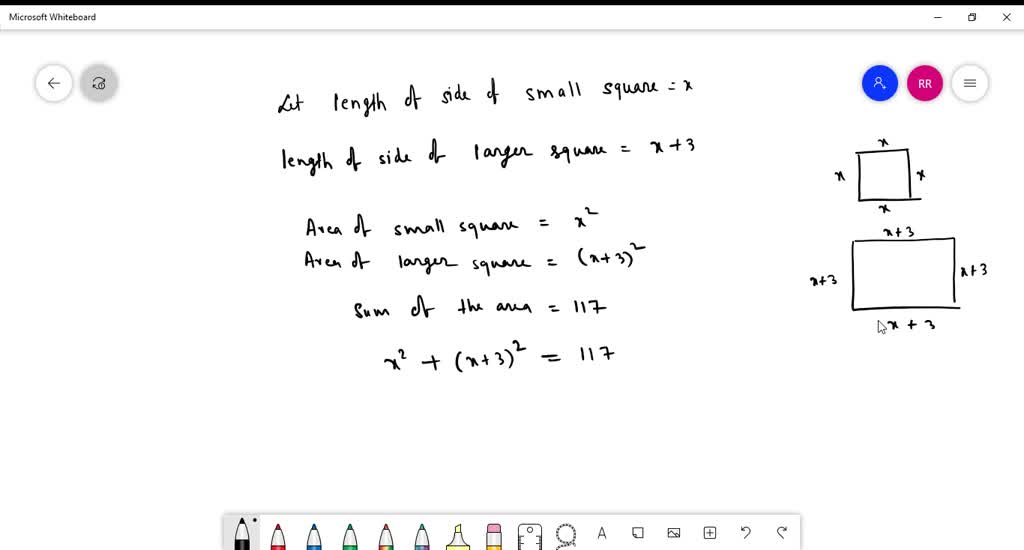 Microsoft Whiteboard
RR
Let length of side of small square = x
length of side of larger square = x + 3
Area of small square = x²
Area of larger square = (x+3)²
Sum of the area = 117
x² + (x+3)² = 117
x
x x
x
x+3
x+3 x+3
x + 3
A